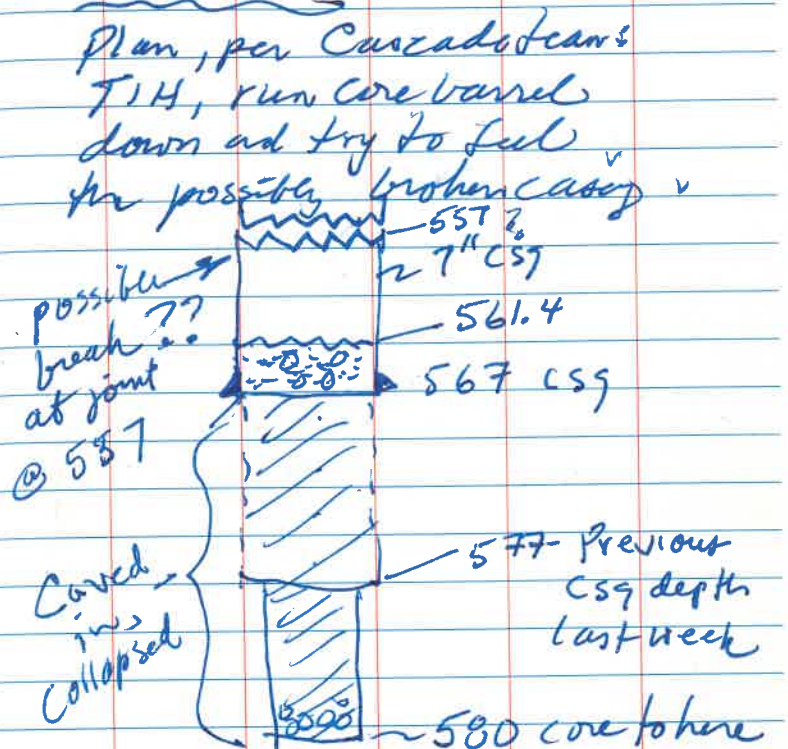 Plan, per Cascade team:
TIH, run core barrel
down ad try to feel
the possibly broken casing
557?
7" csg
possible
break??
at joint
@ 557
561.4
567 csg
577 - Previous
csg depth
last week
Caved
in,
Collapsed
580 core to here